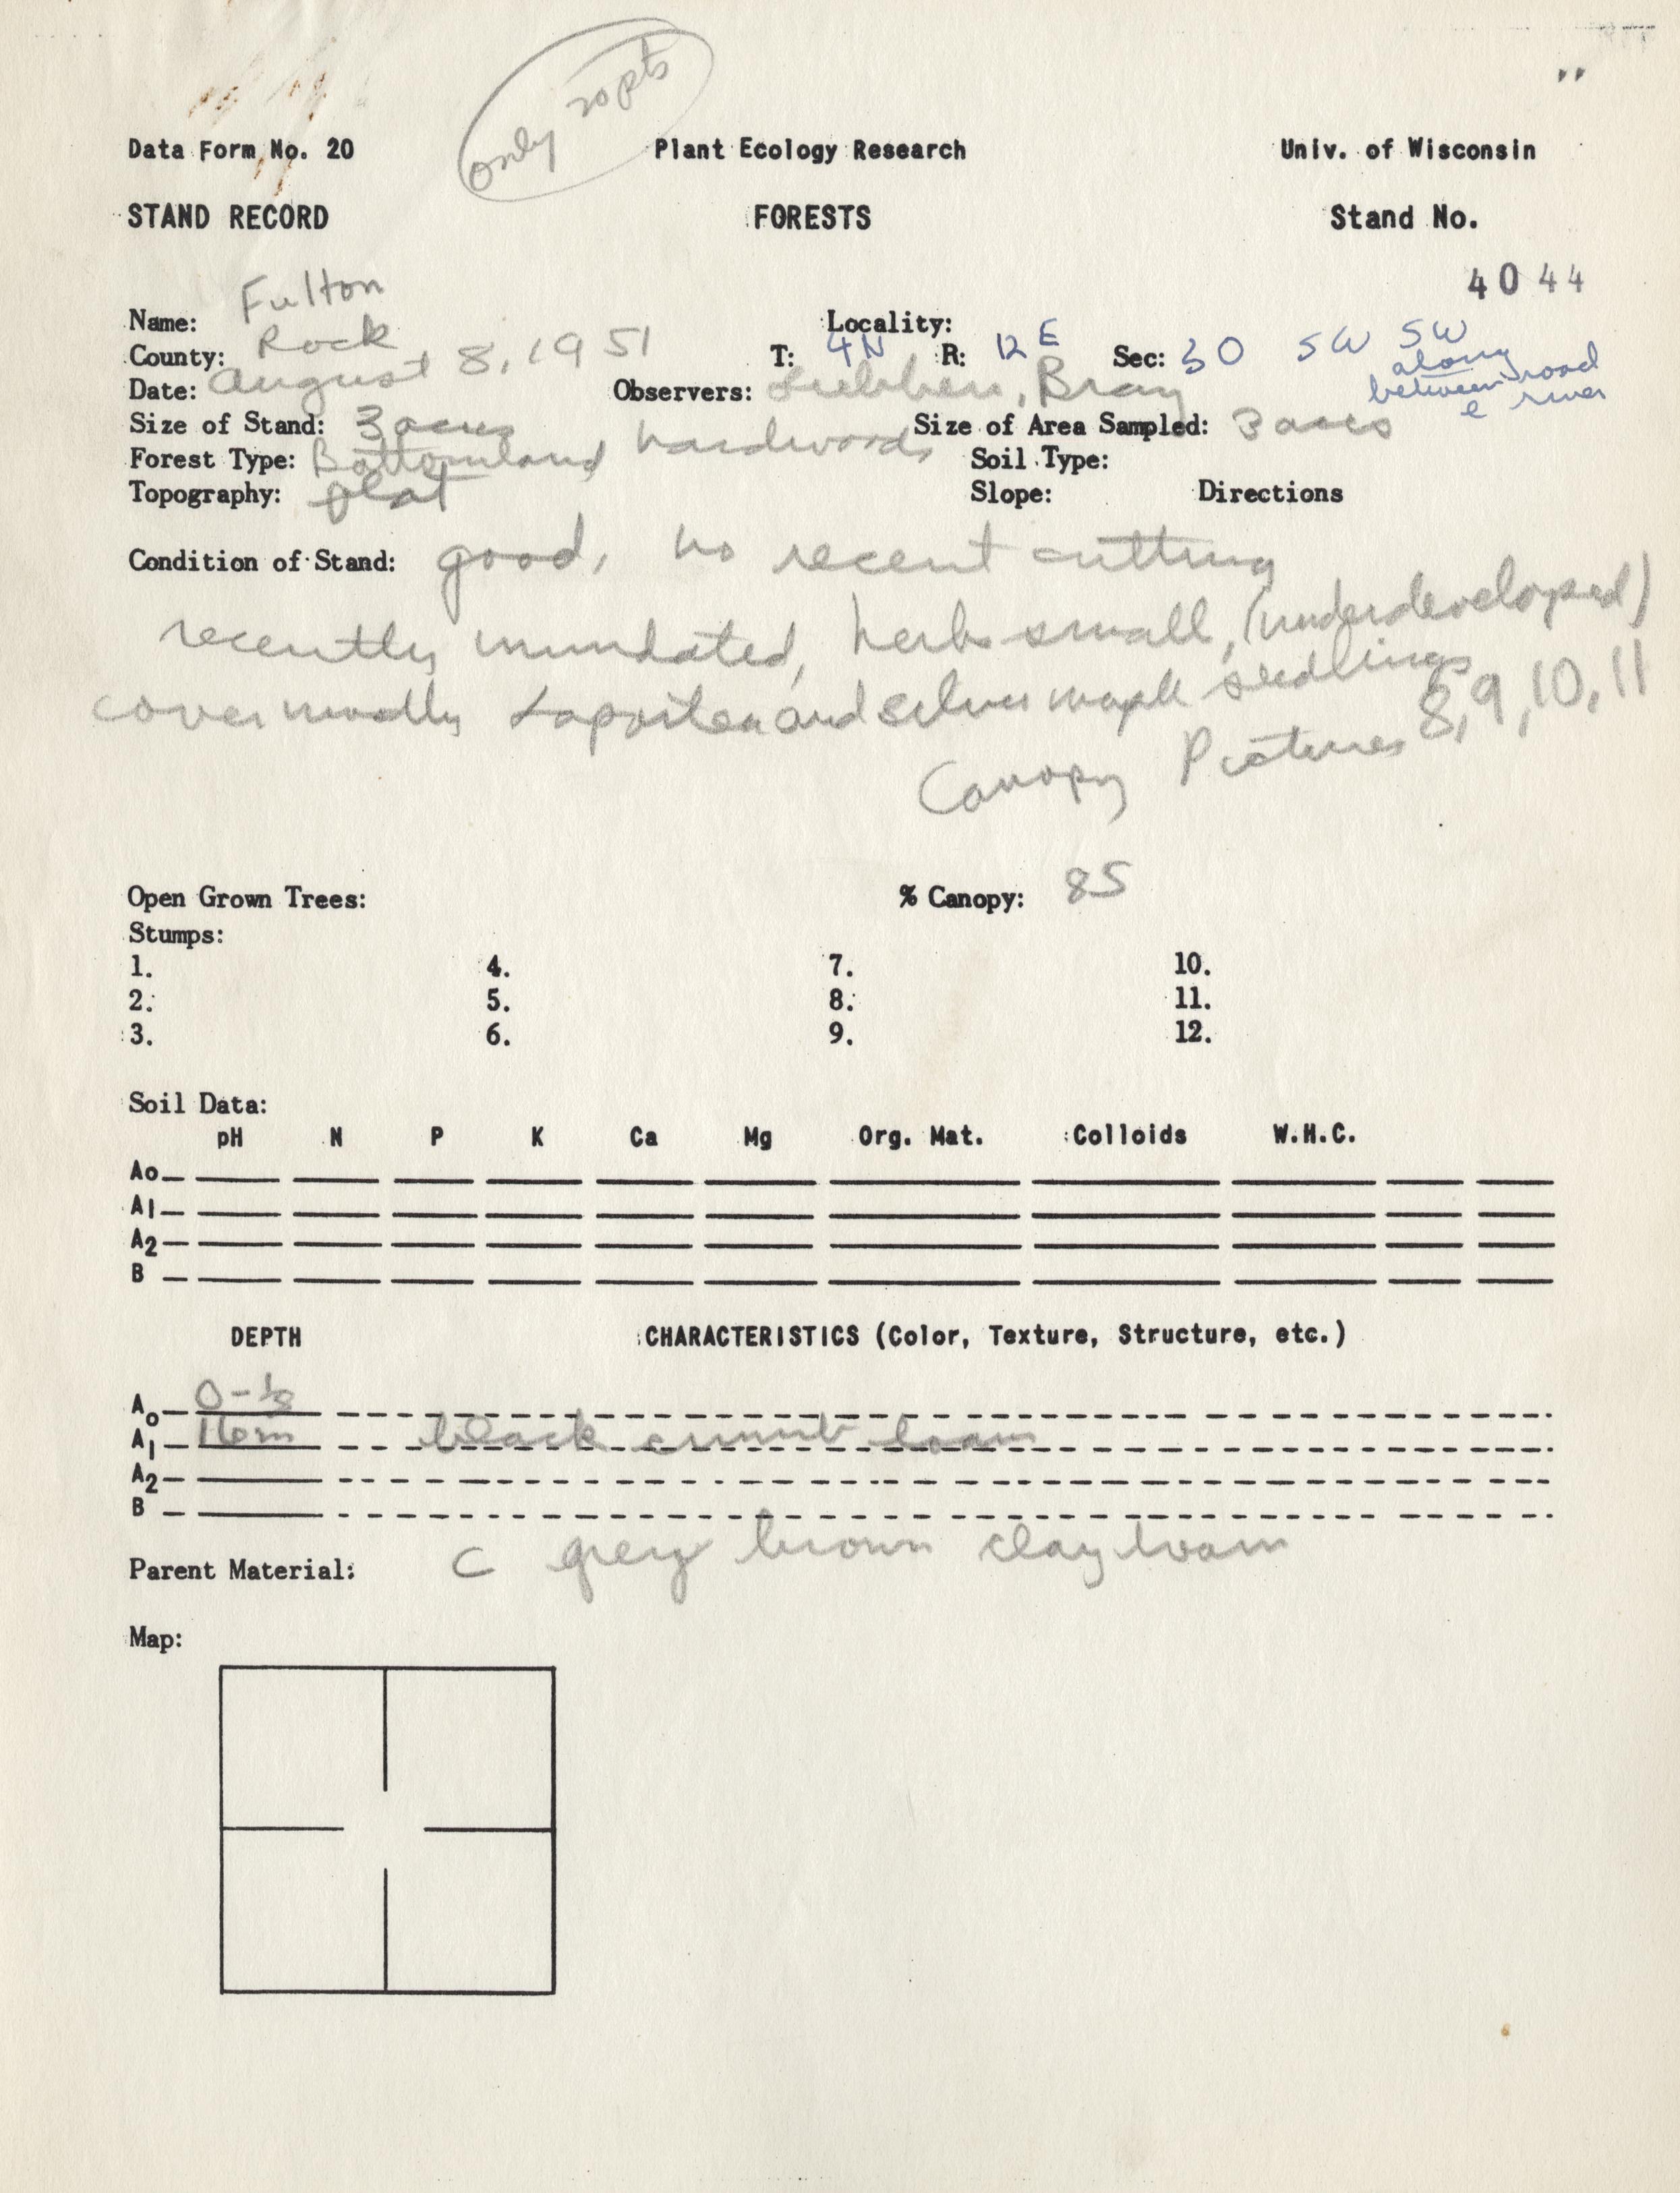 only 20 pts
Data Form No. 20 Plant Ecology Research Univ. of Wisconsin
STAND RECORD FORESTS Stand No.
4044
Name: Fulton Locality:
County: Rock T: 4N R: 12 E Sec: 30 SW SW
along
between road
e river
Date: August 8, 1951 Observers: Bray
Size of Stand: 3 acres Size of Area Sampled: 3 acres
Forest Type: Bottomland hardwoods Soil Type:
Topography: flat Slope: Directions
Condition of Stand: good, no recent cutting
recently inundated, herbs small, (underdeveloped)
cover mostly Laportea and silver maple seedlings
Canopy Pictures 8, 9, 10, 11
Open Grown Trees: % Canopy: 85
Stumps:
1. 4. 7. 10.
2. 5. 8. 11.
3. 6. 9. 12.
Soil Data:
pH N P K Ca Mg Org. Mat. Colloids W.H.C.
Ao
A1
A2
B
DEPTH CHARACTERISTICS (Color, Texture, Structure, etc.)
Ao 0-½
A1 black crumb loam
A2
B
Parent Material: C grey brown clay loam
Map: